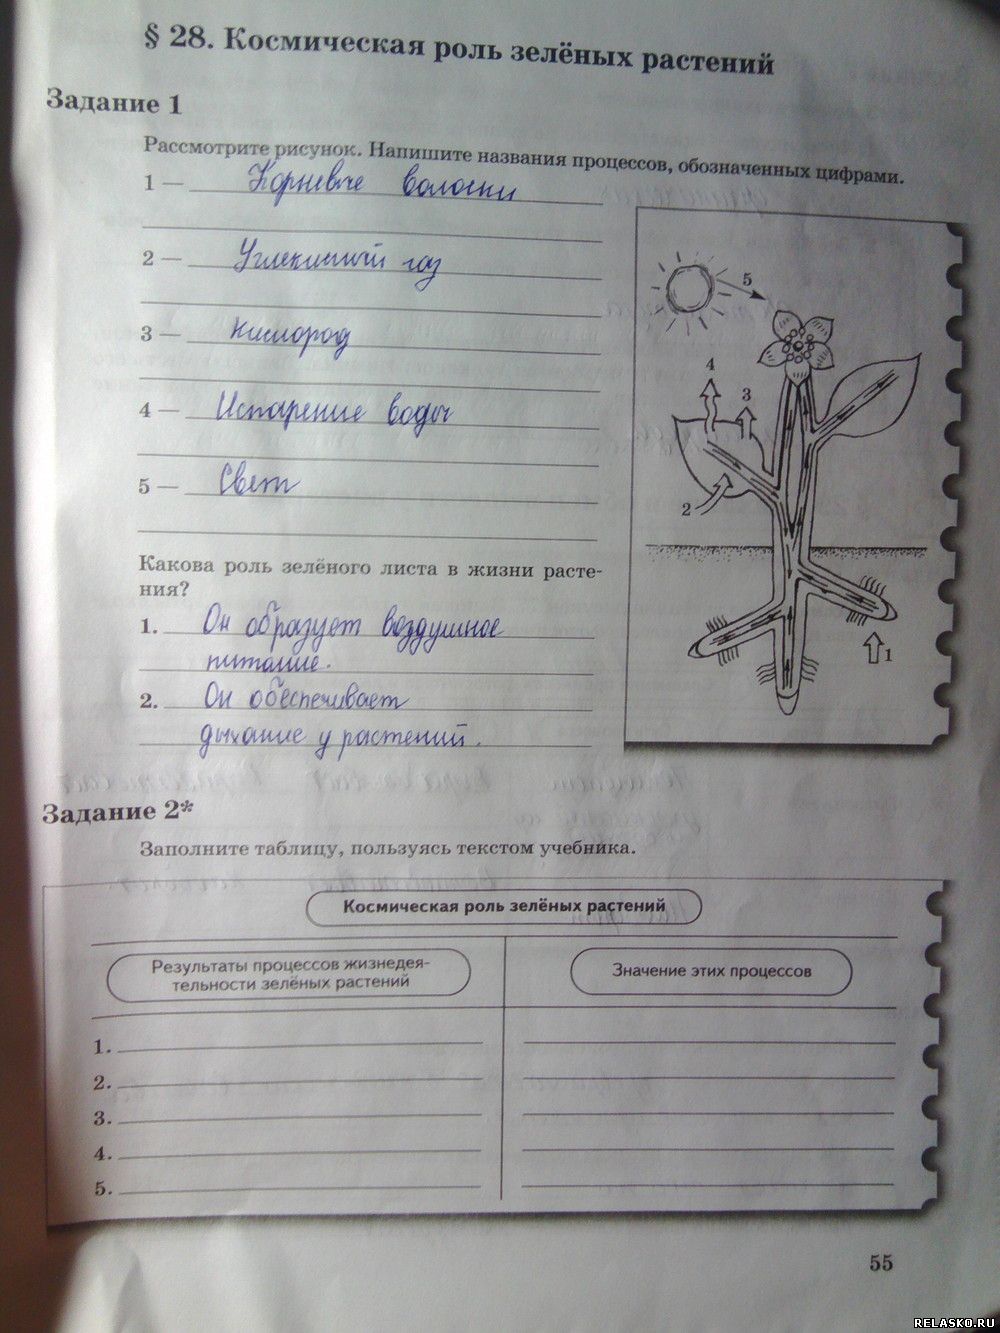 § 28. Космическая роль зелёных растений
Задание 1
Рассмотрите рисунок. Напишите названия процессов, обозначенных цифрами.
1 — Корневые волоски
2 — Углекислый газ
3 — Кислород
4 — Испарение воды
5 — Свет
5
4
3
2
1
Какова роль зелёного листа в жизни расте-
ния?
1. Он образует воздушное
питание.
2. Он обеспечивает
дыхание у растений.
Задание 2*
Заполните таблицу, пользуясь текстом учебника.
Космическая роль зелёных растений
Результаты процессов жизнедея-
тельности зелёных растений
Значение этих процессов
1.
2.
3.
4.
5.
55
RELASKO.RU